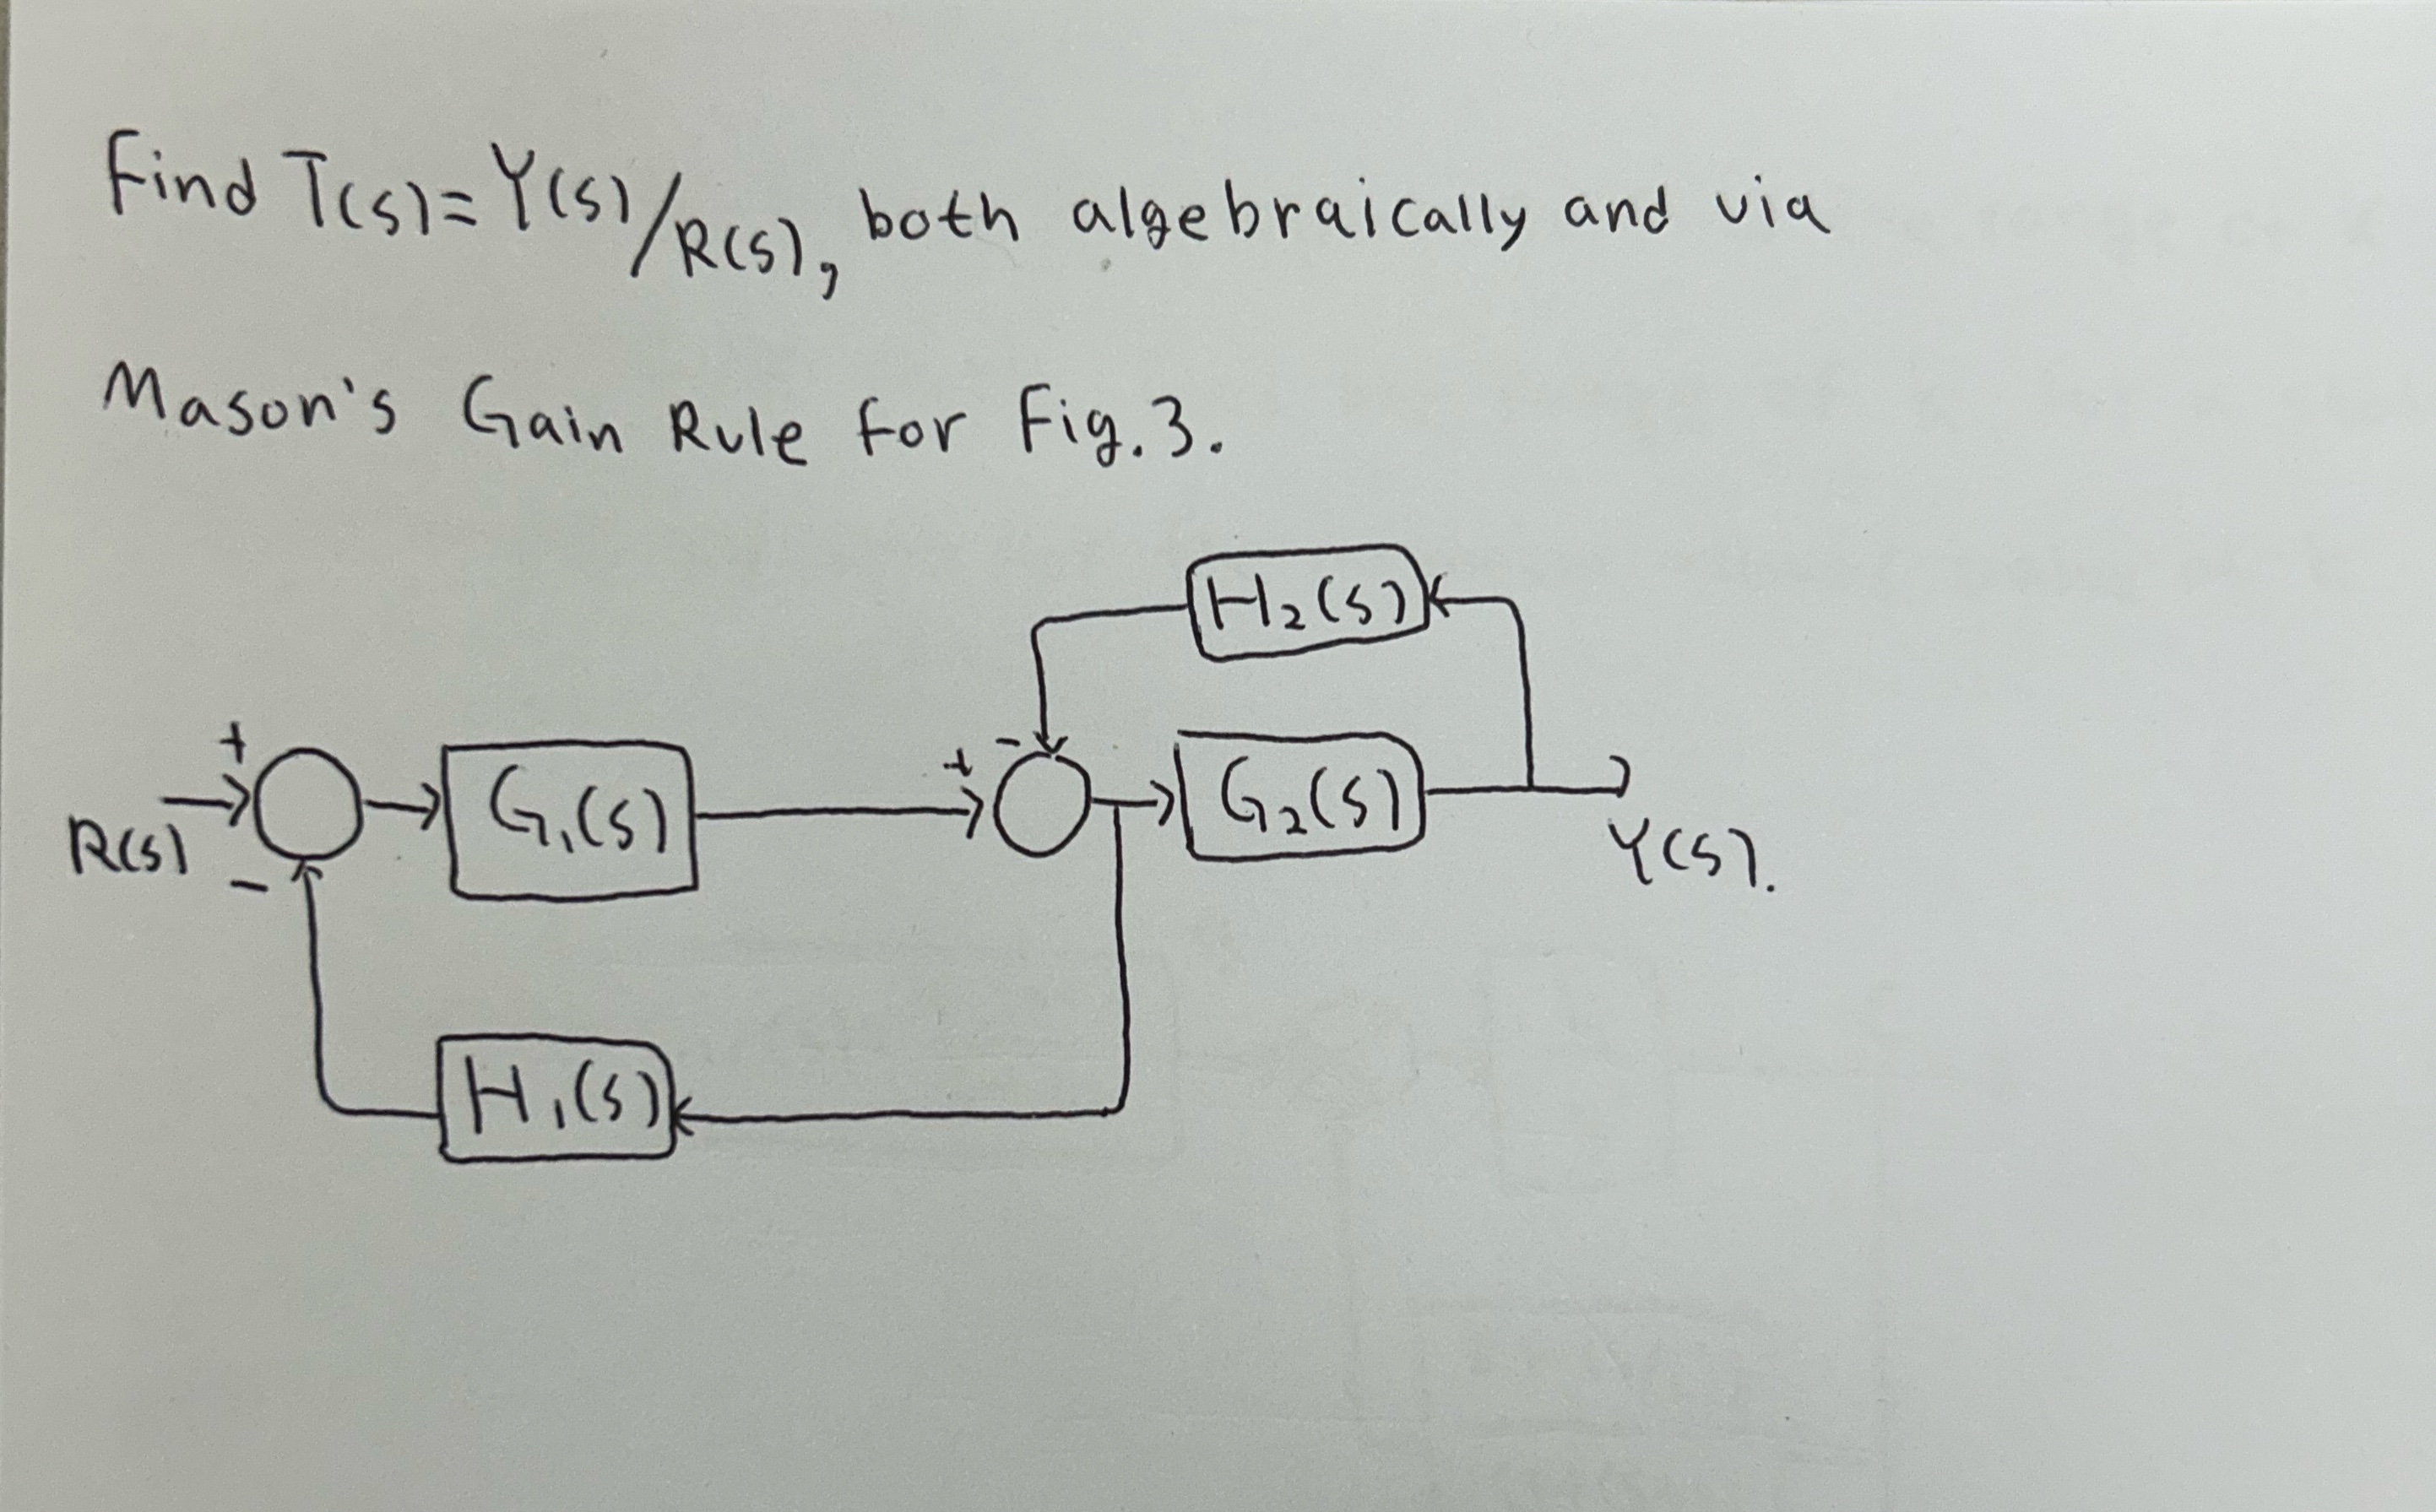 Find T(s)=Y(s)/R(s), both algebraically and via
Mason's Gain Rule for Fig.3.
H₂(s)
+
-
+
R(s)
G₁(s)
G₂(s)
Y(s).
-
H₁(s)